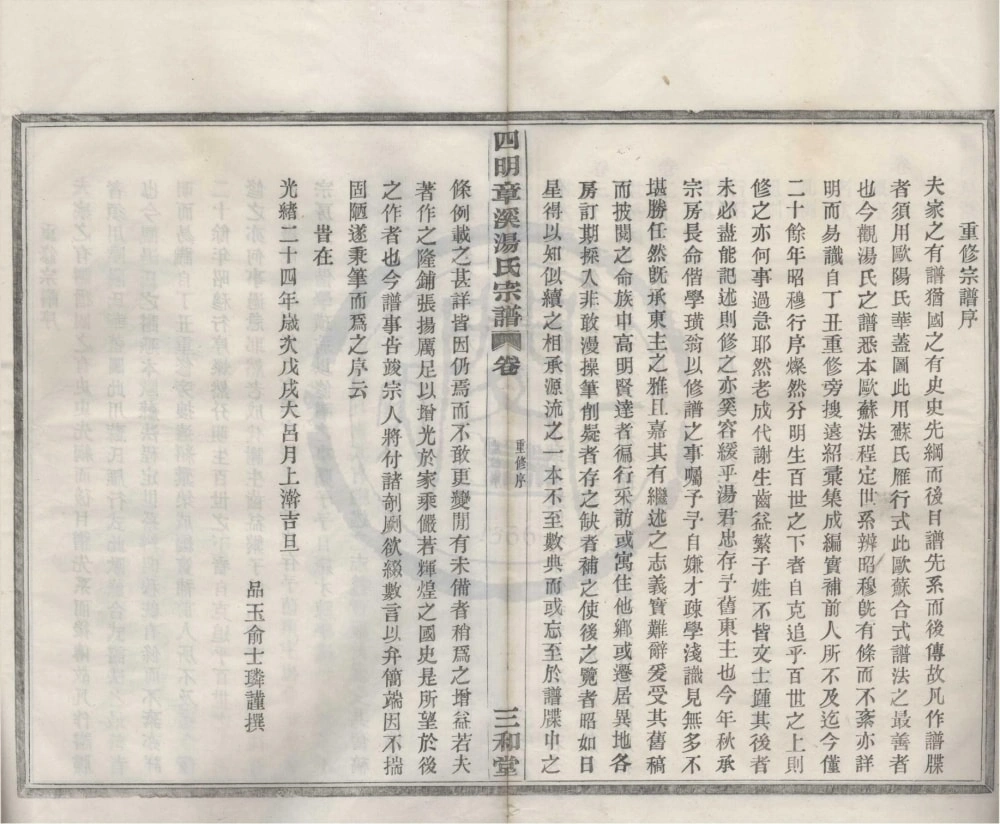 重修宗譜序
夫家之有譜猶國之有史史先綱而後目譜先系而後傳故凡作譜牒
者須用歐陽氏華蓋圖此用蘇氏雁行式此歐蘇合式譜法之最善者
也今觀湯氏之譜悉本歐蘇法程定世系辨昭穆旣有條而不紊亦詳
明而易識自丁丑重修旁搜遠紹彙集成編實補前人所不及迄今僅
二十餘年昭穆行序燦然分明生百世之下者自克追乎百世之上則
修之亦何事過急耶然老成代謝生齒益繁子姓不皆文士踵其後者
未必盡能記述則修之亦奚容緩乎湯君忠存予舊東主也今年秋承
宗房長命偕學璜翁以修譜之事囑予予自嫌才疎學淺識見無多不
堪勝任然旣承東主之雅且嘉其有繼述之志義實難辭爰受其舊稿
而披閱之命族中高明賢達者徧行采訪或寓住他鄉或遷居異地各
房訂期探入非敢漫操筆削疑者存之缺者補之使後之覽者昭如日
星得以知似續之相承源流之一本不至數典而或忘至於譜牒中之
四明章溪湯氏宗譜
卷
重修序
三和堂
條例載之甚詳皆因仍焉而不敢更變閒有未備者稍爲之增益若夫
著作之隆鋪張揚厲足以增光於家乘儼若輝煌之國史是所望於後
之作者也今譜事告竣宗人將付諸剞劂欲綴數言以弁簡端因不揣
固陋遂秉筆而爲之序云
峕在
光緒二十四年歲次戊戌大呂月上澣吉旦
品玉俞士璘謹撰